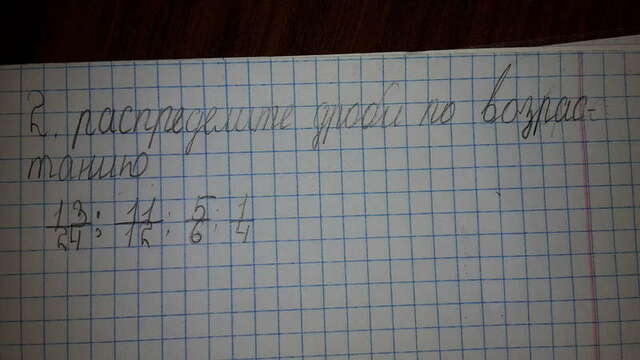 2. распределите дроби по возрас-
танию
13/24; 11/12; 5/6; 1/4